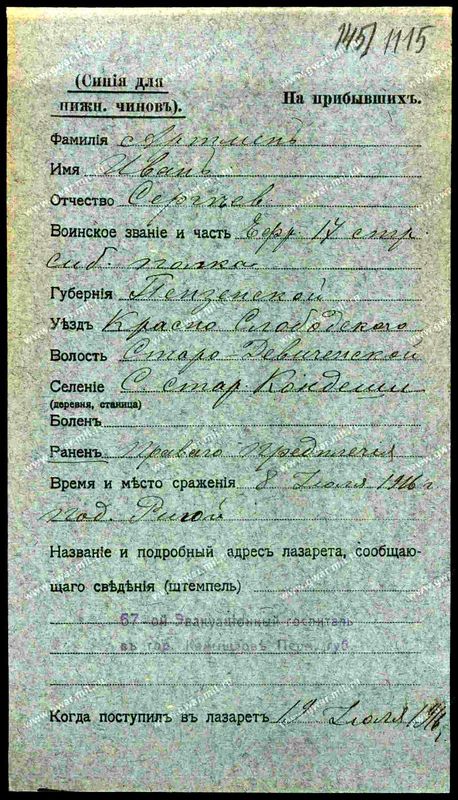 145/1115
(Синія для
нижн. чиновъ).
На прибывшихъ.
Фамилія
Имя Иванъ
Отчество Сергѣев
Воинское званіе и часть Ефр. 17 стр.
сиб. полка
Губернія Пензенской
Уѣздъ Красно Слободского
Волость Старо Девиченской
Селеніе С стар
(деревня, станица)
Боленъ
Раненъ праваго предплечія
Время и мѣсто сраженія 8 Іюля 1916 г
под. Ригой
Названіе и подробный адресъ лазарета, сообщаю-
щаго свѣдѣнія (штемпель)
67-ой Эвакуаціонный госпиталь
въ гор. губ
Когда поступилъ въ лазаретъ 19 Іюля 1916 г.